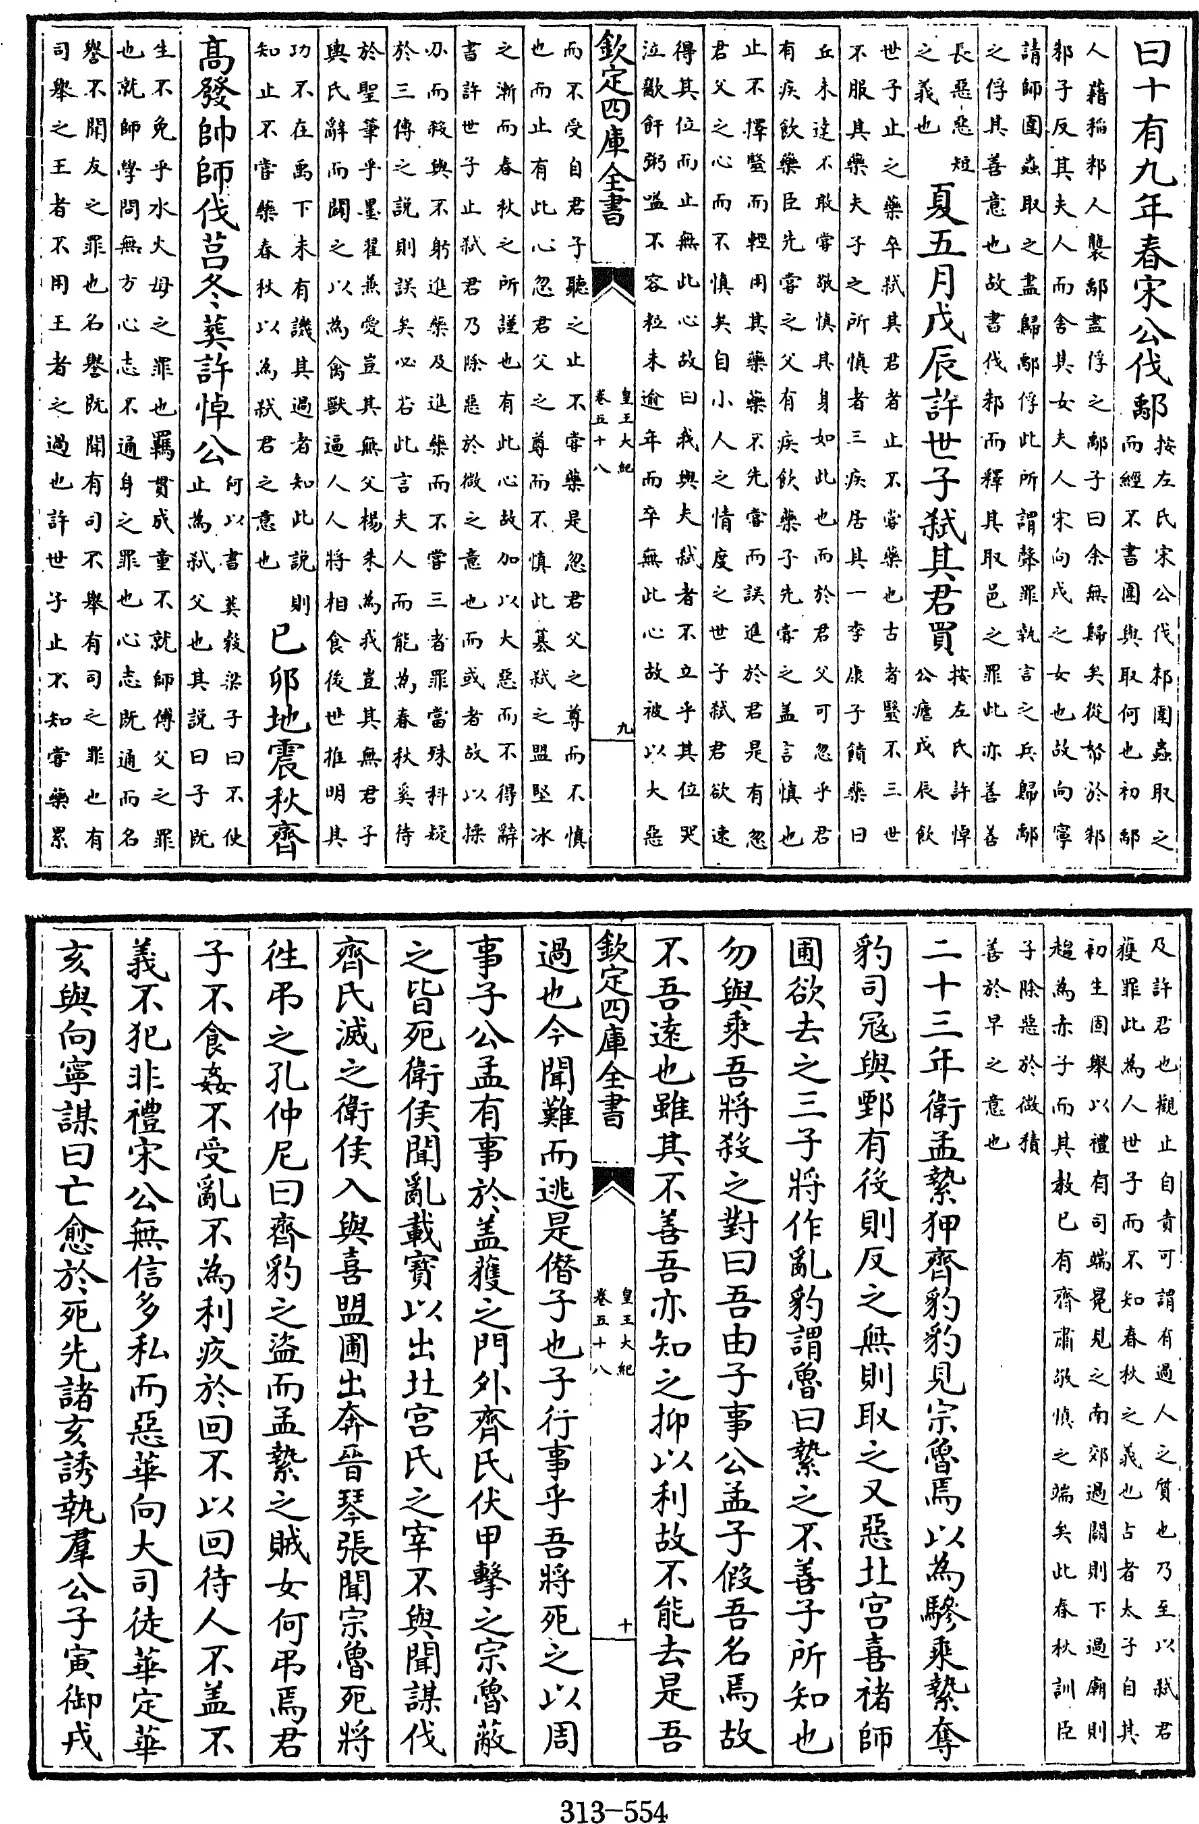 曰十有九年春宋公伐鄅
按左氏宋公伐邾圍蟲取之
而經不書圍與取何也初鄅
人藉稻邾人襲鄅盡俘之鄅子曰余無歸矣從帑於邾
邾子反其夫人而舍其女夫人宋向戌之女也故向寧
請師圍蟲取之盡歸鄅俘此所謂聲罪執言之兵歸鄅
之俘其善意也故書伐邾而釋其取邑之罪此亦善善
長惡惡短
之義也
夏五月戊辰許世子弑其君買
按左氏許悼
公瘧戊辰飲
世子止之藥卒弑其君者止不嘗藥也古者醫不三世
不服其藥夫子之所慎者三疾居其一季康子饋藥曰
丘未達不敢嘗敬慎其身如此也而於君父可忽乎君
有疾飲藥臣先嘗之父有疾飲藥子先嘗之蓋言慎也
止不擇醫而輕用其藥藥不先嘗而誤進於君是有忽
君父之心而不慎矣自小人之情度之世子弑君欲速
得其位而止無此心故曰我與夫弑者不立乎其位哭
泣歠飦粥嗌不容粒未逾年而卒無此心故被以大惡
欽定四庫全書
皇王大紀
卷五十八
九
而不受自君子聽之止不嘗藥是忽君父之尊而不慎
也而止有此心忽君父之尊而不慎此篡弑之盟堅冰
之漸而春秋之所謹也有此心故加以大惡而不得辭
書許世子止弑君乃除惡於微之意也而或者故以操
刃而殺與不躬進藥及進藥而不嘗三者罪當殊科疑
於三傳之說則誤矣必若此言夫人而能為春秋奚待
於聖筆乎墨翟兼愛豈其無父楊朱為我豈其無君子
輿氏辭而闢之以為禽獸逼人人將相食後世推明其
功不在禹下未有譏其過者知此說則
知止不嘗藥春秋以為弑君之意也
己卯地震秋齊
高發帥師伐莒冬葬許悼公
何以書葬穀梁子曰不使
止為弑父也其說曰子既
生不免乎水火母之罪也羈貫成童不就師傅父之罪
也就師學問無方心志不通身之罪也心志既通而名
譽不聞友之罪也名譽既聞有司不舉有司之罪也有
司舉之王者不用王者之過也許世子止不知嘗藥累
及許君也觀止自責可謂有過人之質也乃至以弑君
獲罪此為人世子而不知春秋之義也占者太子自其
初生固舉以禮有司端冕見之南郊過闕則下過廟則
趨為赤子而其教已有齊肅敬慎之端矣此春秋訓臣
子除惡於微積
善於早之意也
二十三年衛孟縶狎齊豹豹見宗魯焉以為驂乘縶奪
豹司寇與鄄有後則反之無則取之又惡北宮喜褚師
圃欲去之三子將作亂豹謂魯曰縶之不善子所知也
勿與乘吾將殺之對曰吾由子事公孟子假吾名焉故
不吾遠也雖其不善吾亦知之抑以利故不能去是吾
欽定四庫全書
皇王大紀
卷五十八
十
過也今聞難而逃是僭子也子行事乎吾將死之以周
事子公孟有事於蓋獲之門外齊氏伏甲擊之宗魯蔽
之皆死衛侯聞亂載寶以出北宮氏之宰不與聞謀伐
齊氏滅之衛侯入與喜盟圃出奔晉琴張聞宗魯死將
徃弔之孔仲尼曰齊豹之盜而孟縶之賊女何弔焉君
子不食姦不受亂不為利疚於回不以回待人不蓋不
義不犯非禮宋公無信多私而惡華向大司徒華定華
亥與向寧謀曰亡愈於死先諸亥誘執羣公子寅御戎
313-554